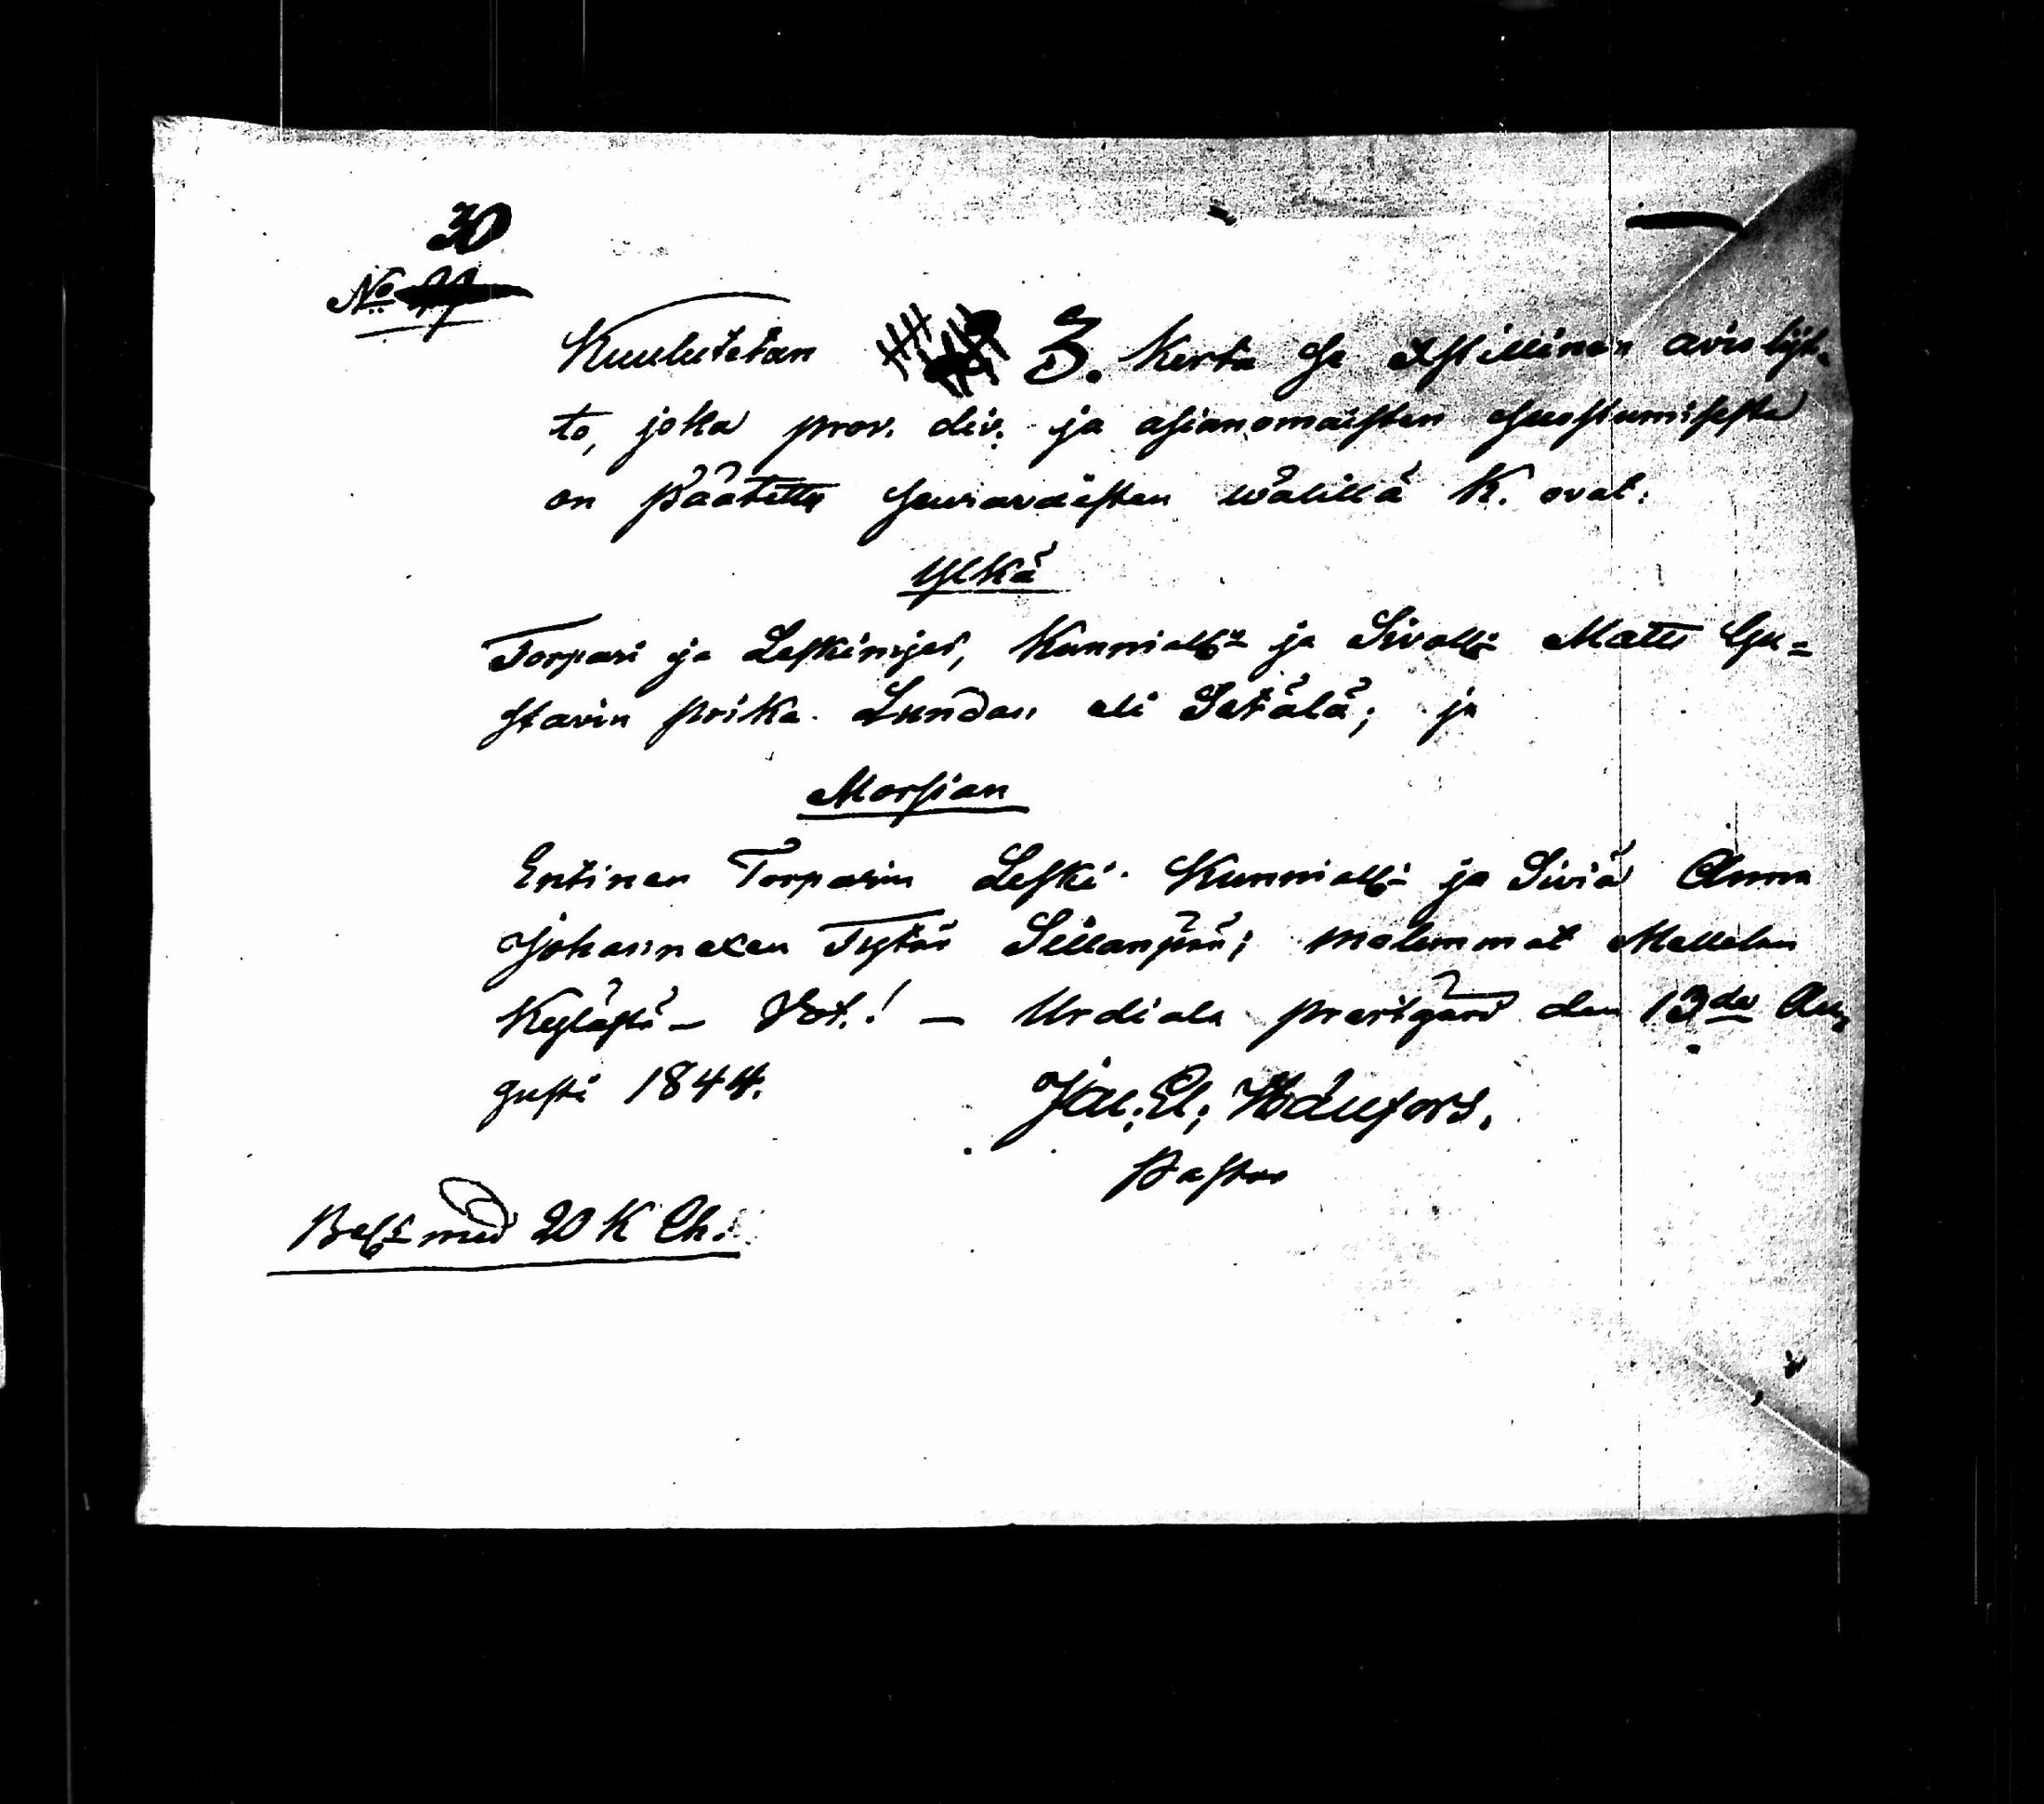 30
No
Kuulutetan 3. Kerta se Xstillinen avioliit-
to, joka prov. div. ja asianomaisten suostumisesta
on päätetty seuraavaisten wälillä K. ovat:
Ylkä
Torpari ja Leskimjes, Kunniallin ja Sivallin Matts Gu=
stavin poika Lundan eli Setälä; ja
Morsian
Entinen Torparin Leski Kunniallin ja Siviä Anna
Johannexen Tytär Sillanpää; molemmat Mellolan
Kyläst - Et.! - Urdiala prestgård den 13de Au=
gusti 1844.
Jac. El.
Pastor
med 20 K